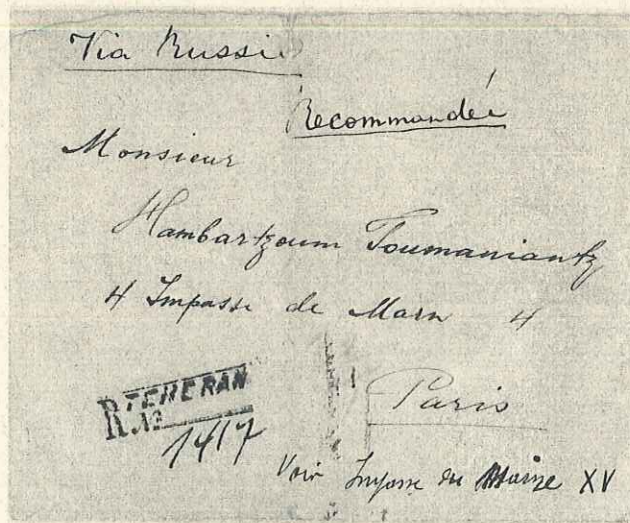 Via Russie
Recommandée
Monsieur
Hambartzoum Toumaniantz
4 Impasse de Marn 4
TEHERAN
R. No 1417
Paris
Voir Impasse du Maine XV